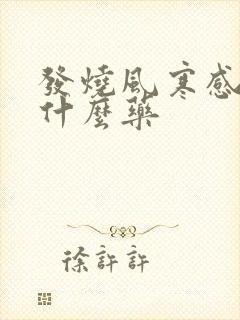 發燒風寒感
什麼藥
徐許許